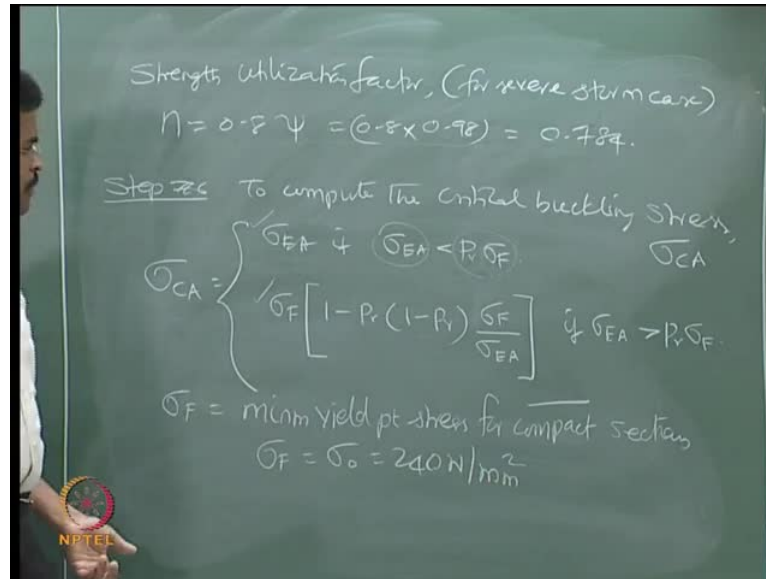 Strength utilization factor, (for severe storm case)
η = 0.8 ψ = (0.8 x 0.98) = 0.784.
Step 6 To compute the critical buckling stress, σCA
σCA = { σEA if σEA < Pr σF
σF [1 - Pr (1 - Pr) σF / σEA] if σEA > Pr σF.
σF = minm yield pt stress for compact section
σF = σ0 = 240 N/mm²
NPTEL